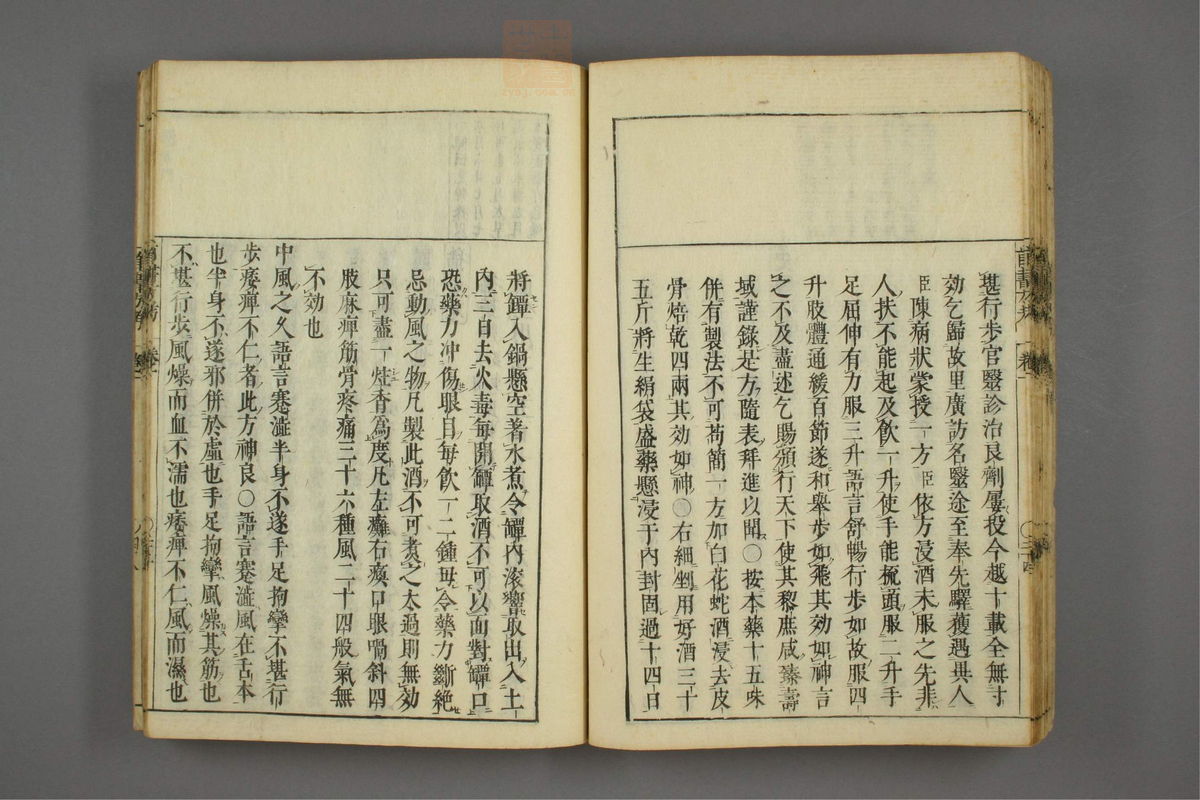 堪行步官醫診治良劑屢投今越十載全無寸
効乞歸故里廣訪名醫途至奉先驛獲遇異人
臣陳病狀蒙授一方臣依方浸酒未服之先非
人扶不能起及飲一升使手能梳頭服二升手
足屈伸有力服三升語言舒暢行步如故服四
升肢體通緩百節遂和舉步如飛其効如神言
之不及盡述乞賜頒行天下使其黎庶咸臻壽
域謹錄是方隨表拜進以聞○按本藥十五味
併有製法不可苟簡一方加白花蛇酒浸去皮
骨焙乾四兩其効如神○右細剉用好酒三十
五斤將生絹袋盛藥懸浸于內封固過十四日
將罈入鍋懸空著水煮令罈內滾響取出入土
內三日去火毒每開罈取酒不可以面對罈口
恐藥力冲傷眼目每飲一二鍾毋令藥力斷絶
忌動風之物凡製此酒不可煮之太過則無効
只可盡一炷香爲度凡左癱右瘓口眼喎斜四
肢麻痺筋骨疼痛三十六種風二十四般氣無
不効也
中風之久語言蹇澁半身不遂手足拘攣不堪行
步痿痺不仁者此方神良○語言蹇澁風在舌本
也半身不遂邪併於虛也手足拘攣風燥其筋也
不堪行步風燥而血不濡也痿痺不仁風而濕也